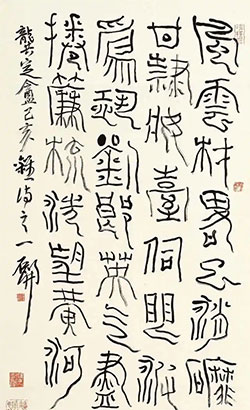 風雲材畧已消磨
甘隸妝臺伺眼波
為恐劉郎英气盡
捲簾梳洗望黃河
龔定盦己亥雜詩之一